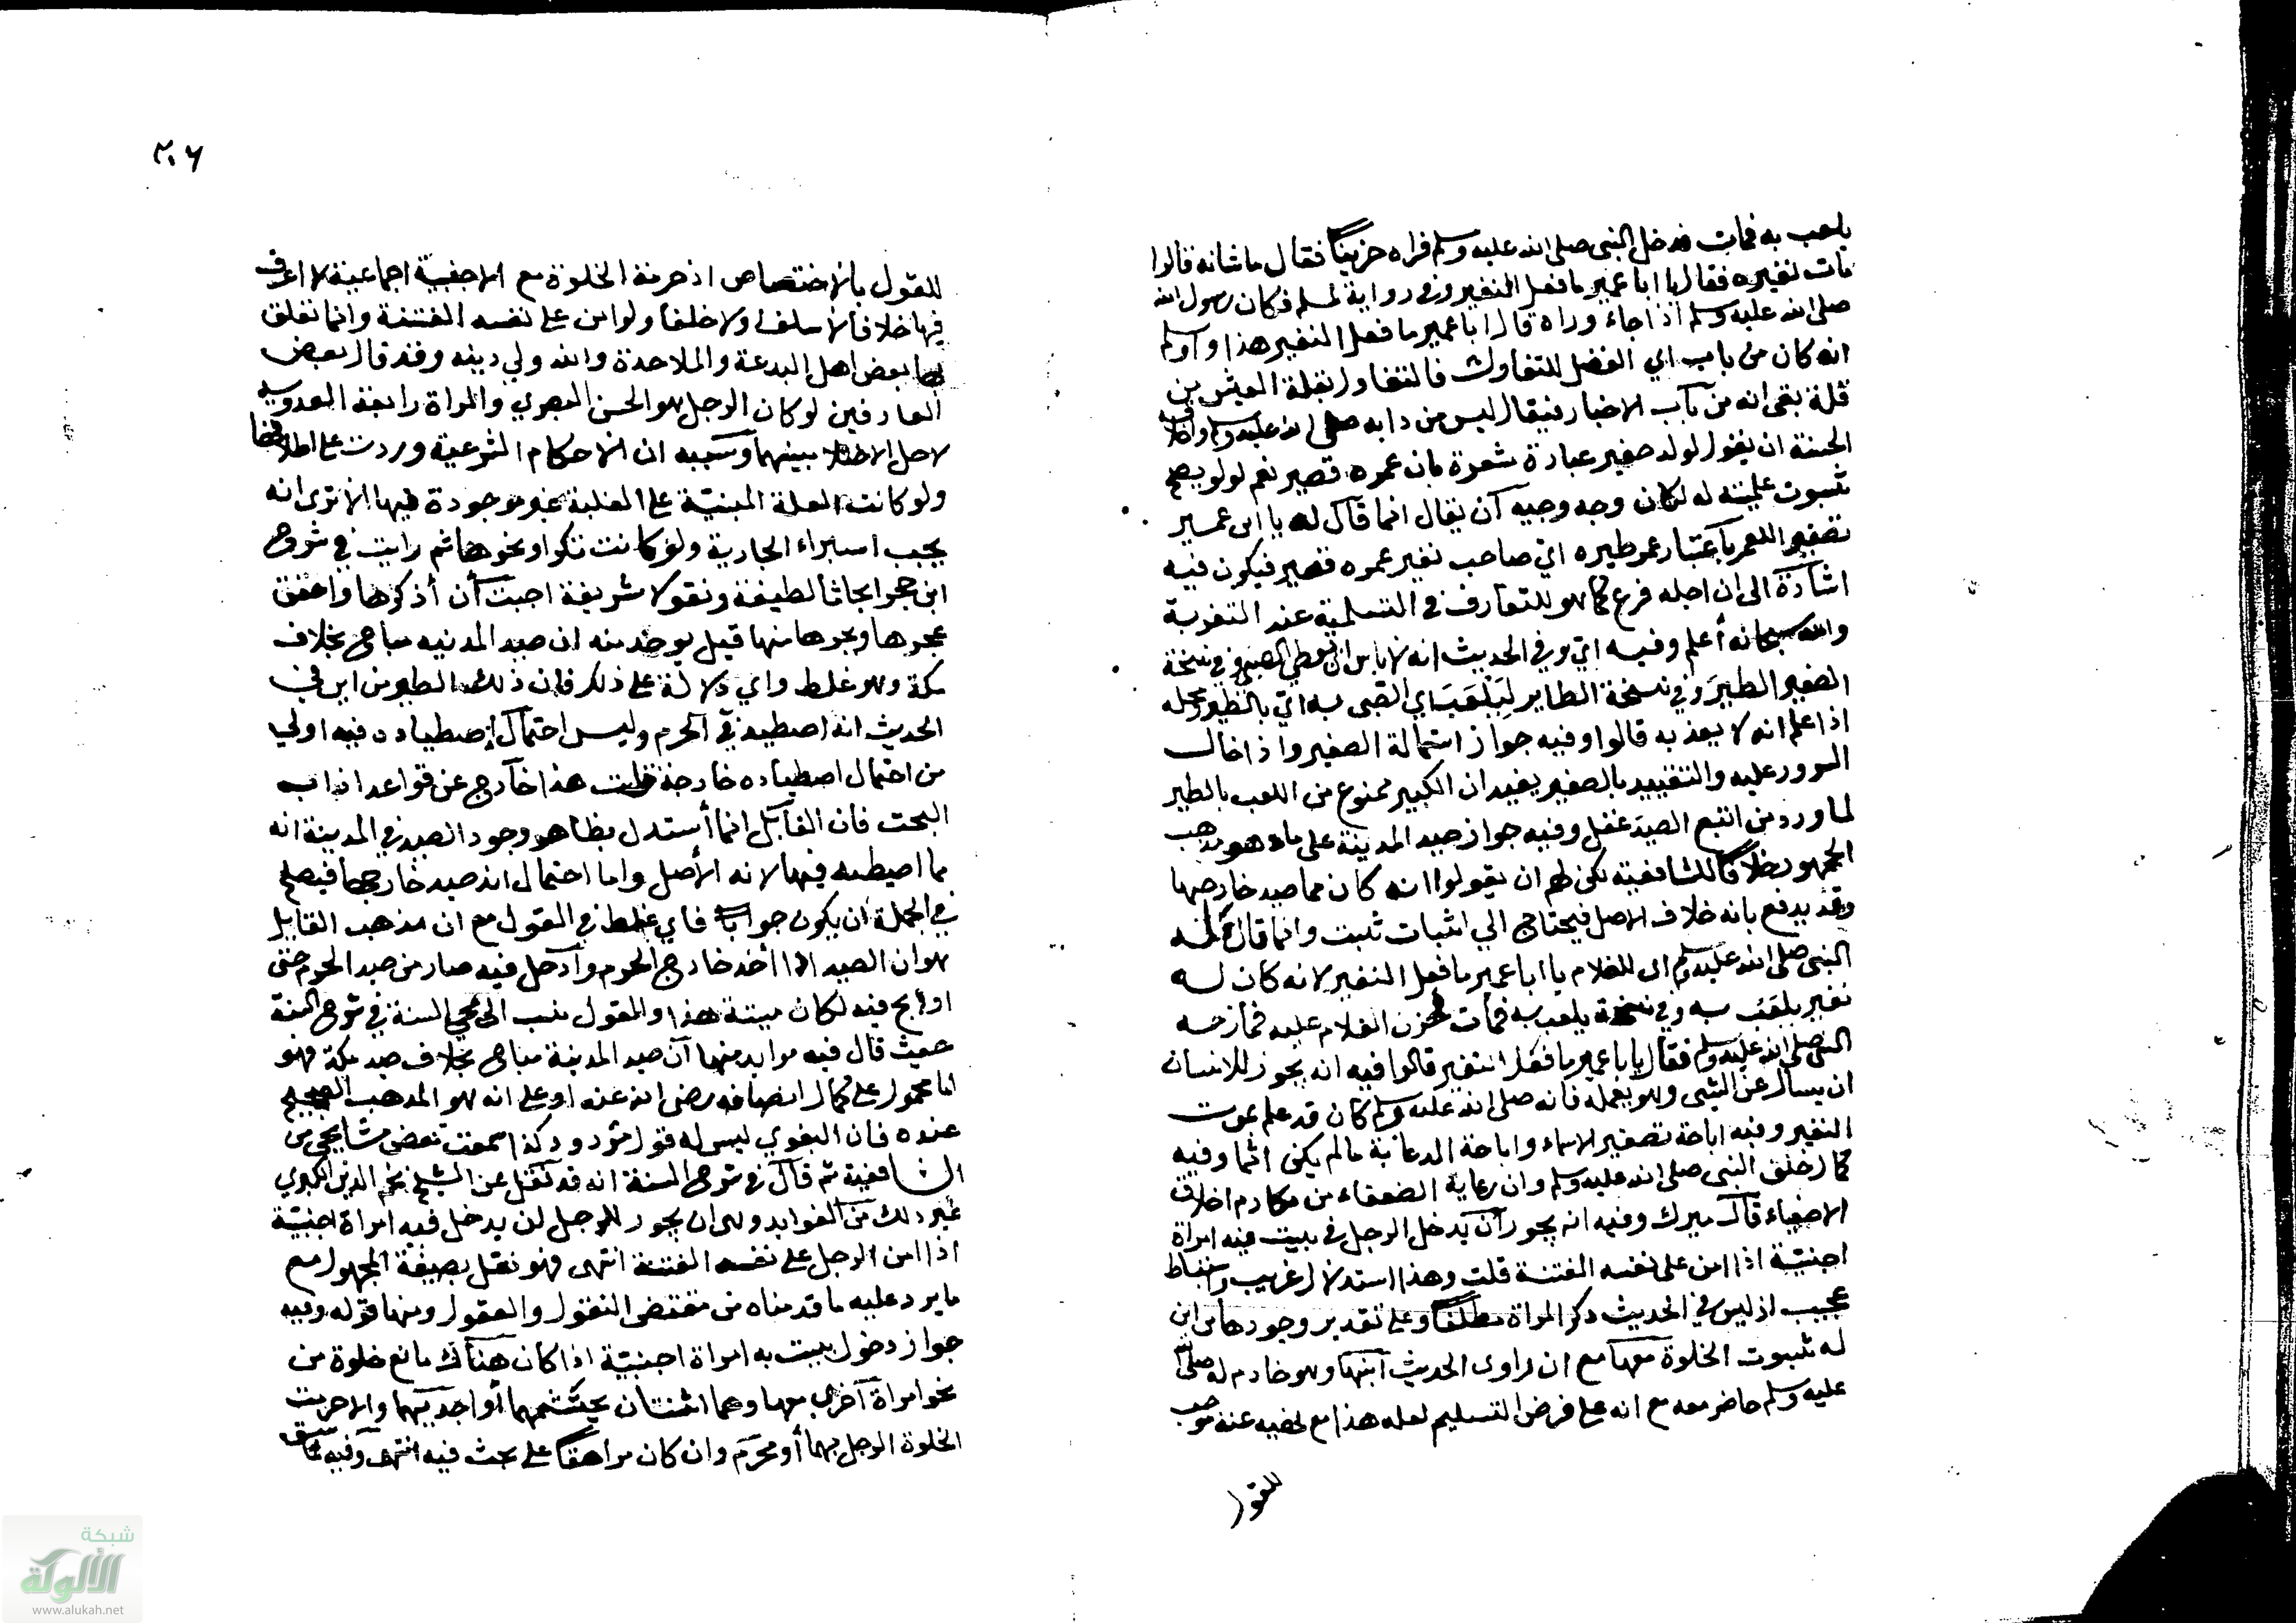 يلعب به فمات فدخل النبي صلى الله عليه وسلم فراه حزينا فقال ما شانه قالوا
مات نغيره فقال يا ابا عمير ما فعل النغير وفي رواية لمسلم فكان رسول الله
صلى الله عليه وسلم اذا جاء وراه قال ابا عمير ما فعل النغير هذا
انه كان من باب اي الفضل للتفاول فالتفاول بقلة العيش من
قلة بقى انه من باب الاخبار فيقال ليس من دابه صلى الله عليه وسلم
الحسنة ان يقول لولد صغير عبارة مشعرة بان عمره قصير نعم لو لم يصح
ثبوت علميته له لكان وجه وجيه ان يقال انما قال له يا ابا عمير
تصغير اللعمر باعتبار عمر طيره اي صاحب نغير عمره قصير فيكون فيه
اشارة الى ان اجله فرغ كما هو المتعارف في التسلية عند التعزية
والله سبحانه أعلم وفيه اي وفي الحديث انه لا باس ان يعطى الصبي وفي نسخة
الصغير الطير وفي نسخة الطاير ليلعب اي الصبى به اي بالطير ومحله
اذا علم انه لا يعذبه قالوا وفيه جواز استمالة الصغير وادخال
السرور عليه والتقييد بالصغير يفيد ان الكبير ممنوع من اللعب بالطير
لما ورد من اتبع الصيد غفل وفيه جواز صيد المدينة على ما هو مذهب
الجمهور خلافا للشافعية لكن لهم ان يقولوا انه كان مما صيد خارجها
وقد يدفع بانه خلاف الاصل فيحتاج الي اثبات ثبت وانما قال له
النبى صلى الله عليه وسلم اى للغلام يا ابا عمير ما فعل النغير لانه كان له
نغير يلعب به وفي نسخة يلعب به فمات فحزن الغلام عليه فمازحه
النبي صلى الله عليه وسلم فقال يا ابا عمير ما فعل النغير قالوا فيه انه يجوز للانسان
ان يسال عن الشي وهو يعلمه فانه صلى الله عليه وسلم كان قد علم بموت
النغير وفيه اباحة تصغير الاسماء واباحة الدعابة ما لم يكن اثما وفيه
كمال خلق النبى صلى الله عليه وسلم وان رعاية الضعفاء من مكارم اخلاق
الاصفياء قال ميرك وفيه انه يجوز أن يدخل الرجل في بيت فيه امراة
اجنبية اذا امن على نفسه الفتنة قلت وهذا استدلال غريب واستنباط
عجيب اذ ليس في الحديث ذكر المراة مطلقا وعلى تقدير وجودها من اين
له ثبوت الخلوة معها مع ان راوى الحديث ابنها وهو خادم له صلى الله
عليه وسلم حاضر معه مع انه على فرض التسليم لعله هذا مع لخصيه عنه موجب
للقول
٢٠٦
للقول بالاختصاص اذ حرمة الخلوة مع الاجنبية اجماعية لا اعرف
فيها خلافا لا سلفا ولا خلفا ولو امن على نفسه الفتنة وانما تعلق
بها بعض اهل البدعة والملاحدة والله ولي دينه وقد قال بعض
العارفين لو كان الرجل هو الحسن البصري والمراة رابعة العدوية
لا حل الاختلا بينهما وسببه ان الاحكام الشرعية وردت على اطلاقها
ولو كانت العلة المبنية على الغلبة غير موجودة فيها الا ترى انه
يجب استبراء الجارية ولو كانت بكرا ونحوها ثم رايت في شروح
ابن حجر ابحاثا لطيفة ونقولا شريفة احببت أن أذكرها واحقق
عجرها وبجرها منها قيل يوخذ منه ان صيد المدنيه مباح بخلاف
مكة وهو غلط واي دلالة على ذلك فان ذلك الطير من اين في
الحديث انه اصطيد في الحرم وليس احتمال اصطياده فيه اولي
من احتمال اصطياده خارجة قلت هذا خارج عن قواعد اداب
البحث فان القايل انما أستدل بظاهر وجود الصيد في المدينة انه
مما اصيطد فيها لانه الأصل واما احتمال انه صيد خارجها فيصلح
في الجملة ان يكون جوابا فاي غلط في القول مع ان مذهب القايل
هو ان الصيد اذا أخذ خارج الحرم وادخل فيه صار من صيد الحرم حتى
لو ذبح فيه لكان ميتة هذا والمقول منسب الى محي السنة في شرح السنة
حيث قال فيه فوايد منها ان صيد المدينة مباح بخلاف صيد مكة فهو
اما محمول على كمال انصافه رضى الله عنه او على انه هو المذهب الصحيح
عنده فان البغوي ليس له قول مردود كذا سمعت بعض مشايخي من
الشافعية ثم قال في شرح السنة انه قد نقل عن الشيخ نجم الدين الكبري
غير ذلك من الفوايد وهى ان يجوز للرجل ان يدخل فيه امراة اجنبية
اذا امن الرجل على نفسه الفتنة انتهى فهو نقل بصيغة المجهول مع
ما يرد عليه ما قدمناه من مقتضى النقول والعقول ومنها قوله وفيه
جواز دخول بيت به امراة اجنبية اذا كان هناك مانع خلوة من
نحو امراة آخرى معها وهما اثنتان يحتشمهما أو احديهما والا حرمت
الخلوة الرجل بهما أو محرم وان كان مراهقا على بحث فيه انتهى وفيه ما سبق
شبكة
الألوكة
www.alukah.net